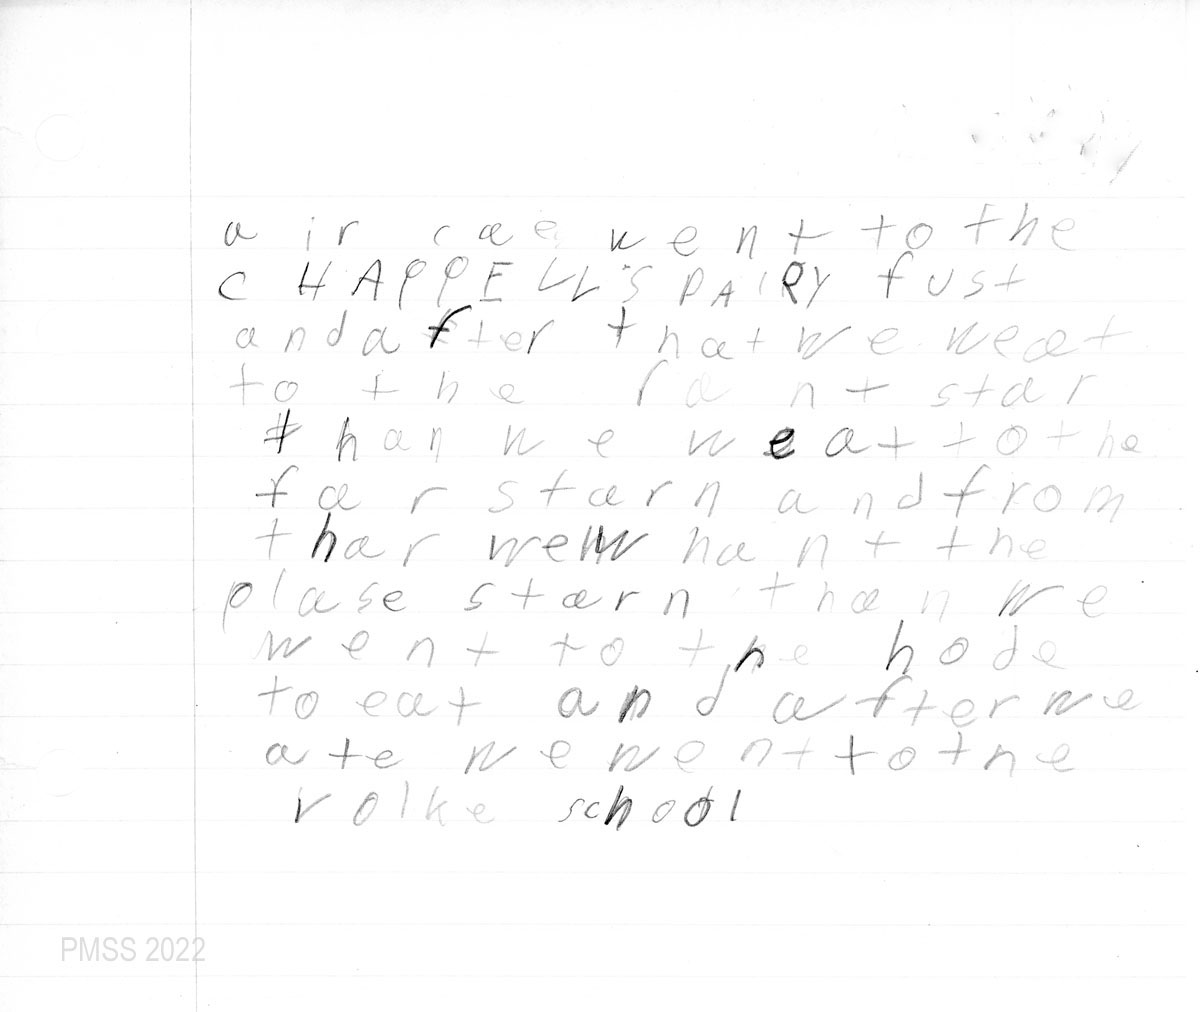 a ir cae went to the
C HAPPELL'S DAIRY fust
and after that we weat
to the fa nt star
than we weat to the
far starn and from
thar we want the
plase starn than we
went to the hode
to eat and after we
ate we went to the
rolke school
PMSS 2022